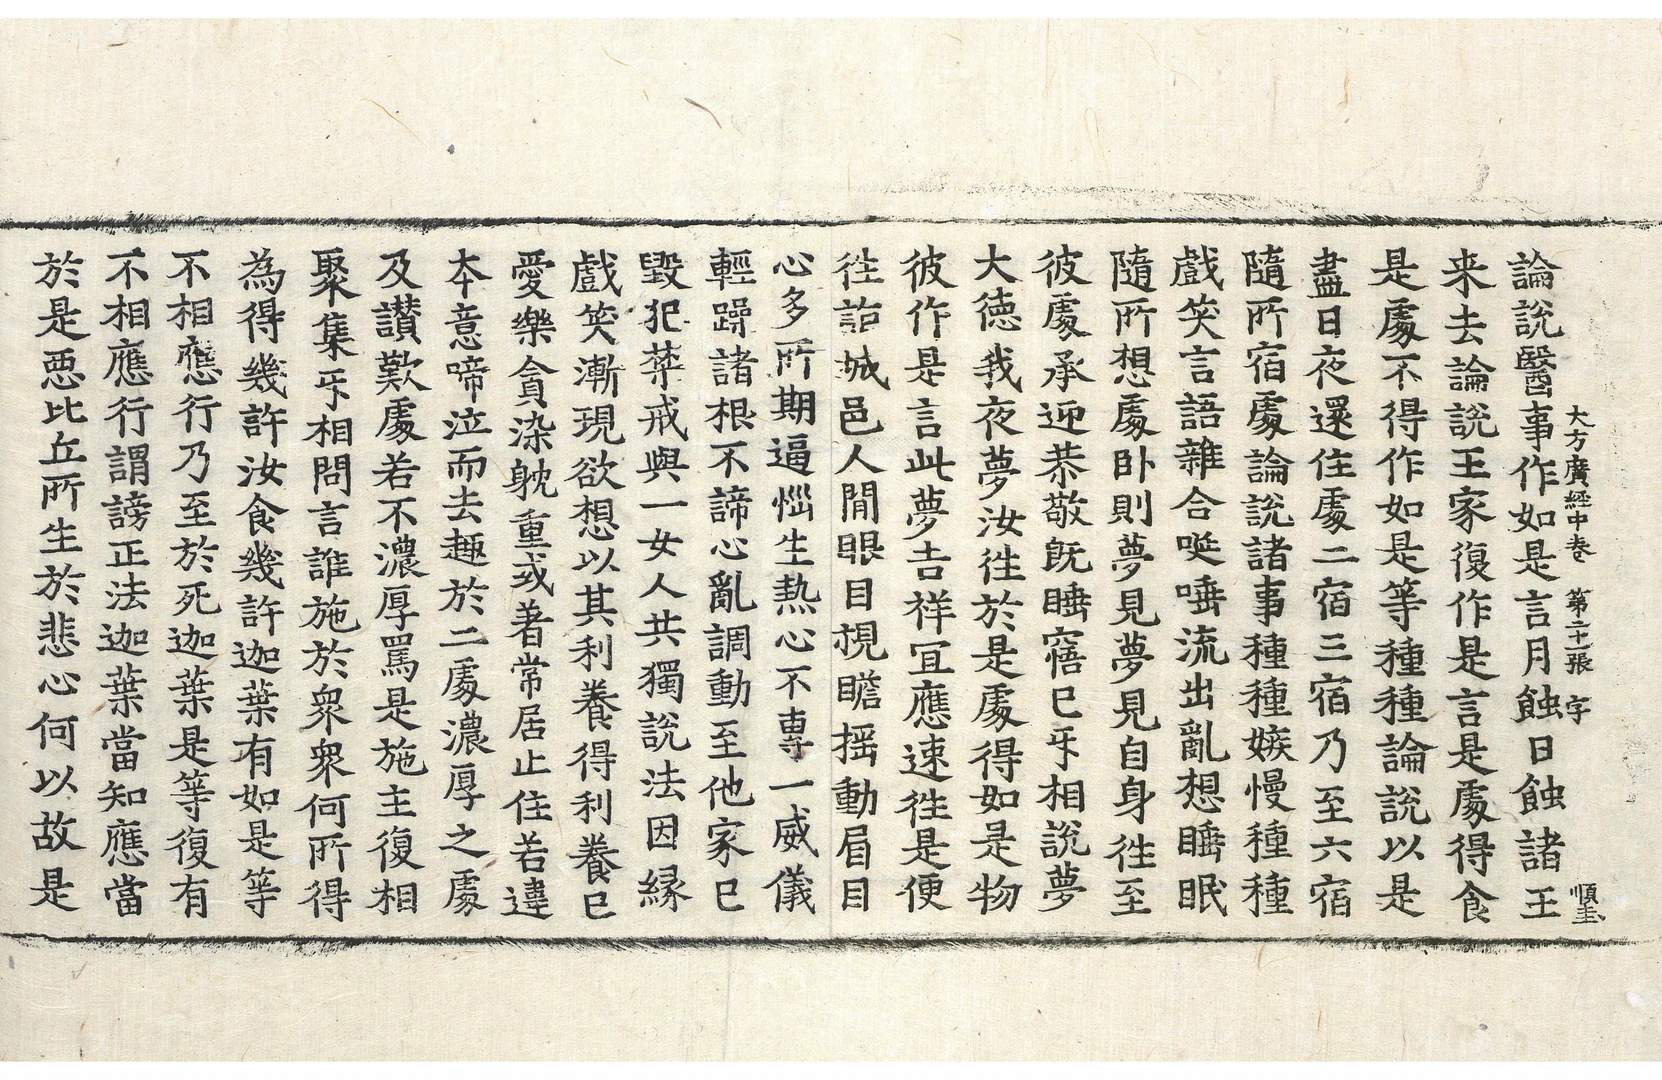 大方廣經中卷 第二十一張 字
論說醫事作如是言月蝕日蝕諸王
来去論說王家復作是言是處得食
是處不得作如是等種種論說以是
盡日夜還住處二宿三宿乃至六宿
隨所宿處論說諸事種種嫉慢種種
戲笑言語雜合唌唾流出亂想睡眠
隨所想處卧則夢見夢見自身徃至
彼處承迎恭敬旣睡寤已㸦相說夢
大德我夜夢汝徃於是處得如是物
彼作是言此夢吉祥宜應速徃是便
徃詣城邑人閒眼目視瞻揺動眉目
心多所期逼惱生熱心不專一威儀
輕躁諸根不諦心亂調動至他家已
毀犯禁戒與一女人共獨說法因緣
戲笑漸現欲想以其利養得利養已
愛樂貪染躭重或著常居止住若違
本意啼泣而去趣於二處濃厚之處
及讃歎處若不濃厚罵是施主復相
聚集㸦相問言誰施於衆衆何所得
為得幾許汝食幾許迦葉有如是等
不相應行乃至於死迦葉是等復有
不相應行謂謗正法迦葉當知應當
於是惡比丘所生於悲心何以故是